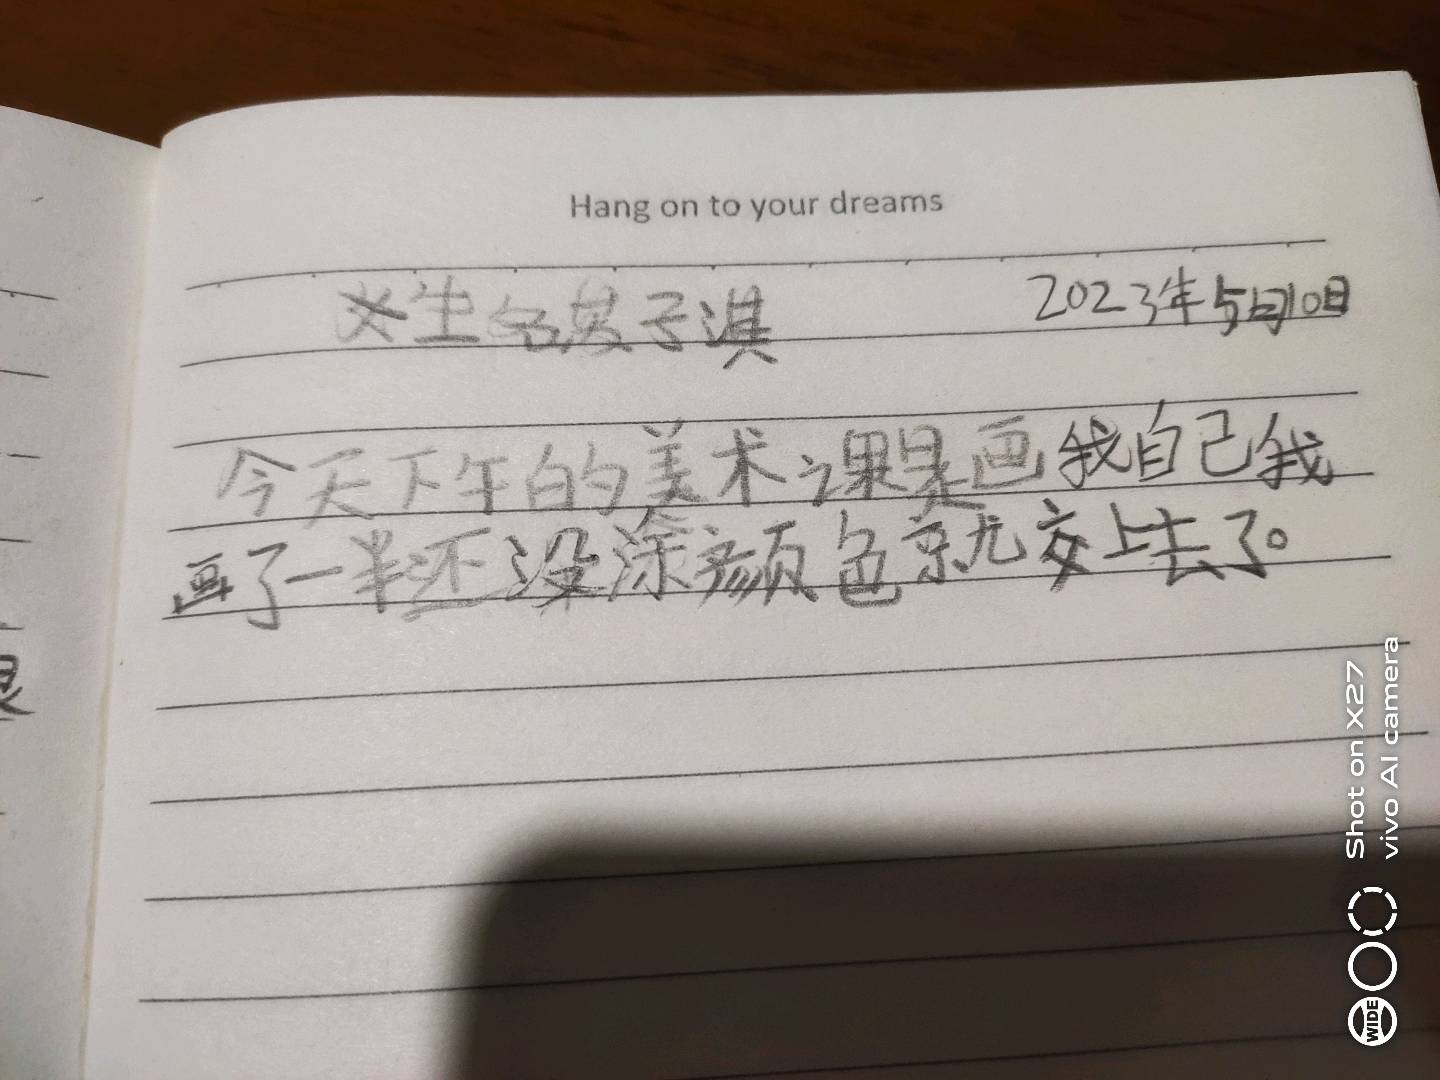 Hang on to your dreams
生名莫子淇 2023年5月10日
今天下午的美术课是画我自己我
画了一半还没涂颜色就交上去了。
Shot on X27
vivo AI camera
WIDE